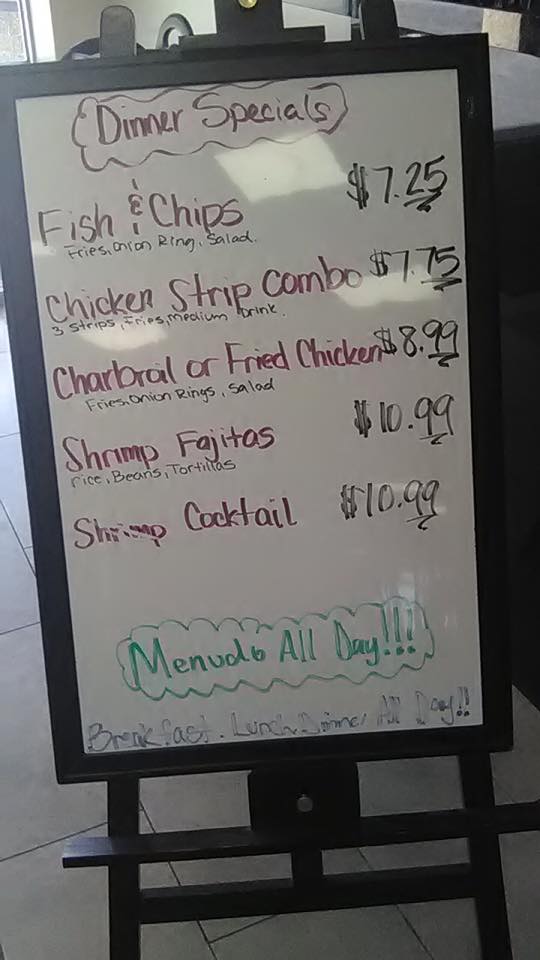 Dinner Specials
Fish & Chips $7.25
Fries, Onion Ring, Salad.
Chicken Strip Combo $7.75
3 Strips, Fries, medium Drink.
Charbrail or Fried Chicken $8.99
Fries, Onion Rings, Salad
Shrimp Fajitas $10.99
rice, Beans, Tortillas
Shrimp Cocktail $10.99
Menudo All Day!!!
Breakfast. Lunch Dinner All Day!!